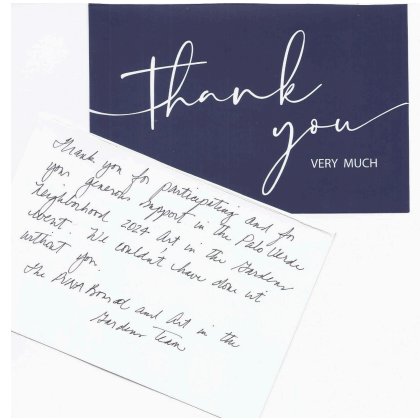 thank
you
VERY MUCH
Thank you for participating and for
your generous support in the Palo Verde
Neighborhood 2024 Art in the Gardens
event. We couldn't have done it
without you.
The PVNA Board and Art in the
Gardens Team